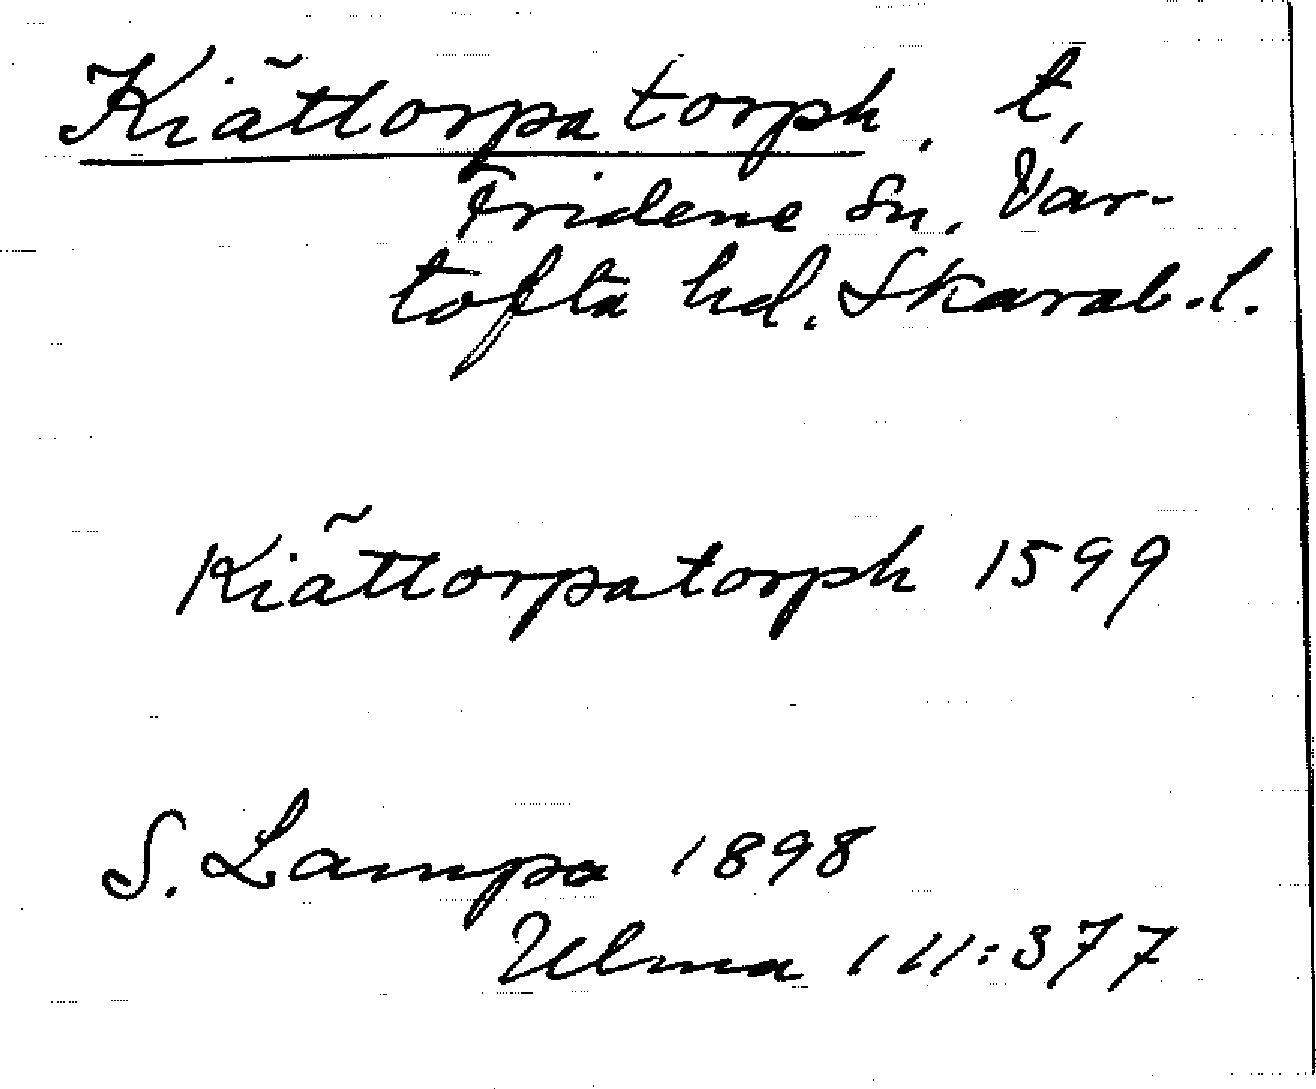 Kiättorpa torph, t,
Fridene Sn. Var-
tofta hd. Skarab.l.
Kiättorpatorph 1599
S. Lampa 1898
Ulma 111:377